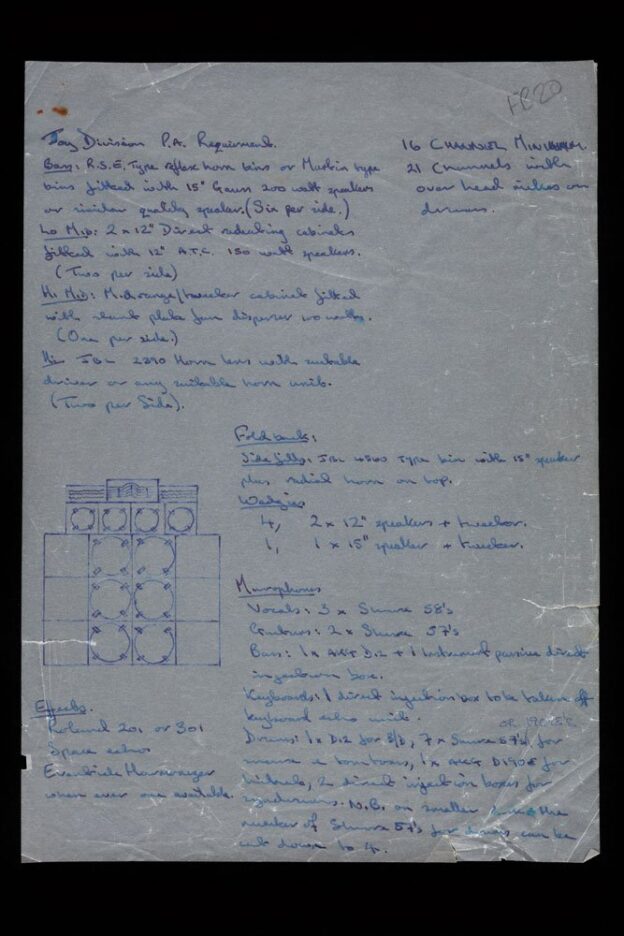 FC20
Joy Division P.A. Requirement.
Bass: R.S.E. Type reflex horn bins or Martin type
bins fitted with 15" Gauss 200 watt speakers
or similar quality speaker. (Six per side.)
Lo Mid: 2 x 12" Direct radiating cabinets
fitted with 12" A.T.C. 150 watt speakers.
(Two per side)
Hi Mid: Midrange/tweeter cabinet fitted
with slant plate fan disperser 100 watts.
(One per side.)
Hi: JBL 2390 Horn lens with suitable
driver or any suitable horn unit.
(Two per Side).
16 CHANNEL MINIMUM
21 Channels with
over head mikes on
drums.
Foldback:
Sidefills: JBL 4560 Type bin with 15" speaker
plus radial horn on top.
Wedges
4, 2 x 12" speakers + tweeter.
1, 1 x 15" speaker + tweeter.
Microphones
Vocals: 3 x Shure 58's
Guitars: 2 x Shure 57's
Bass: 1 x AKG D.12 + 1 Instrument passive direct
injection box.
Keyboards: 1 direct injection box to be taken off
keyboard echo unit.
Drums: 1 x D.12 for B/D, 7 x Shure 57's for
snare & tom toms, 1 x AKG D190E for
hihats, 2 direct injection boxes for
syndrums. N.B. on smaller the
number of Shure 57's for drums can be
cut down to 4.
Effects.
Roland 201 or 301
Space echo
Eventide Harmonizer
when ever one available.